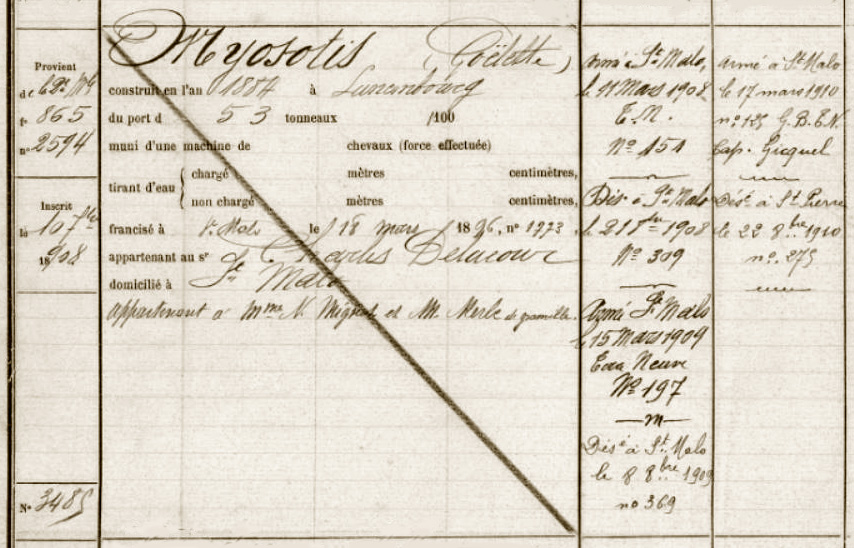 Provient
de
fo 865
no 2594
Inscrit
le 10 fbre
1908
No 3485
Myosotis (Goëlette)
construit en l'an 1884 à Luxembourg
du port d 53 tonneaux /100
muni d'une machine de chevaux (force effectuée)
tirant d'eau { chargé mètres centimètres,
non chargé mètres centimètres,
francisé à St Malo le 18 mars 1896, no 1973.
appartenant au sr Charles Delacour
domicilié à St Malo
appartenant à mme N. Mignot et M. Merle de granville.
Armé à St Malo,
le 11 Mars 1908
T. N.
No 151
Dést à St Malo
le 21 1908
No 309
Armé St Malo
le 15 Mars 1909
Terre Neuve
No 197
Dést à St Malo
le 8 8bre 1909
no 369
Armé à St Malo
le 17 mars 1910
no 125 G. B. T. N.
Cap. Gicquel
Dést à St Pierre
le 22 8bre 1910
no 275